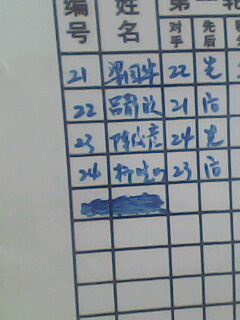 编号 姓名 第一轮
对手 先后
21 梁国华 22 先
22 吕 21 后
23 陈 24 先
24 柳 23 后